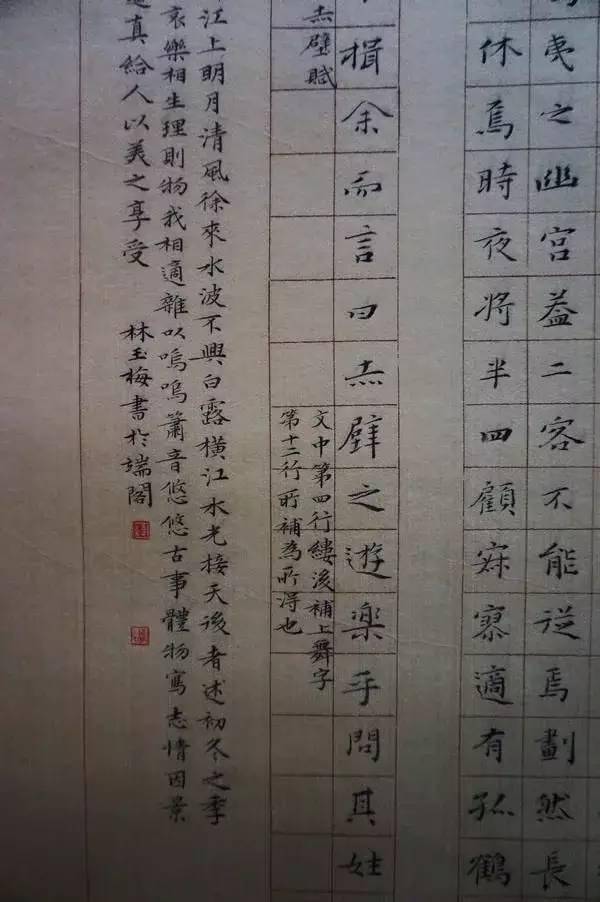 夷之幽宮蓋二客不能從焉劃然長
休焉時夜將半四顧寂寥適有孤鶴
揖余而言曰赤壁之遊楽乎問其姓
赤壁賦
文中第四行縷後補上舞字
第十二行所補為所得也
江上明月清風徐來水波不興白露橫江水光接天後者述初冬之季
哀樂相生理則物我相適雜以嗚嗚簫音悠悠古事體物寫志情因景
真給人以美之享受 林玉梅書於端閣